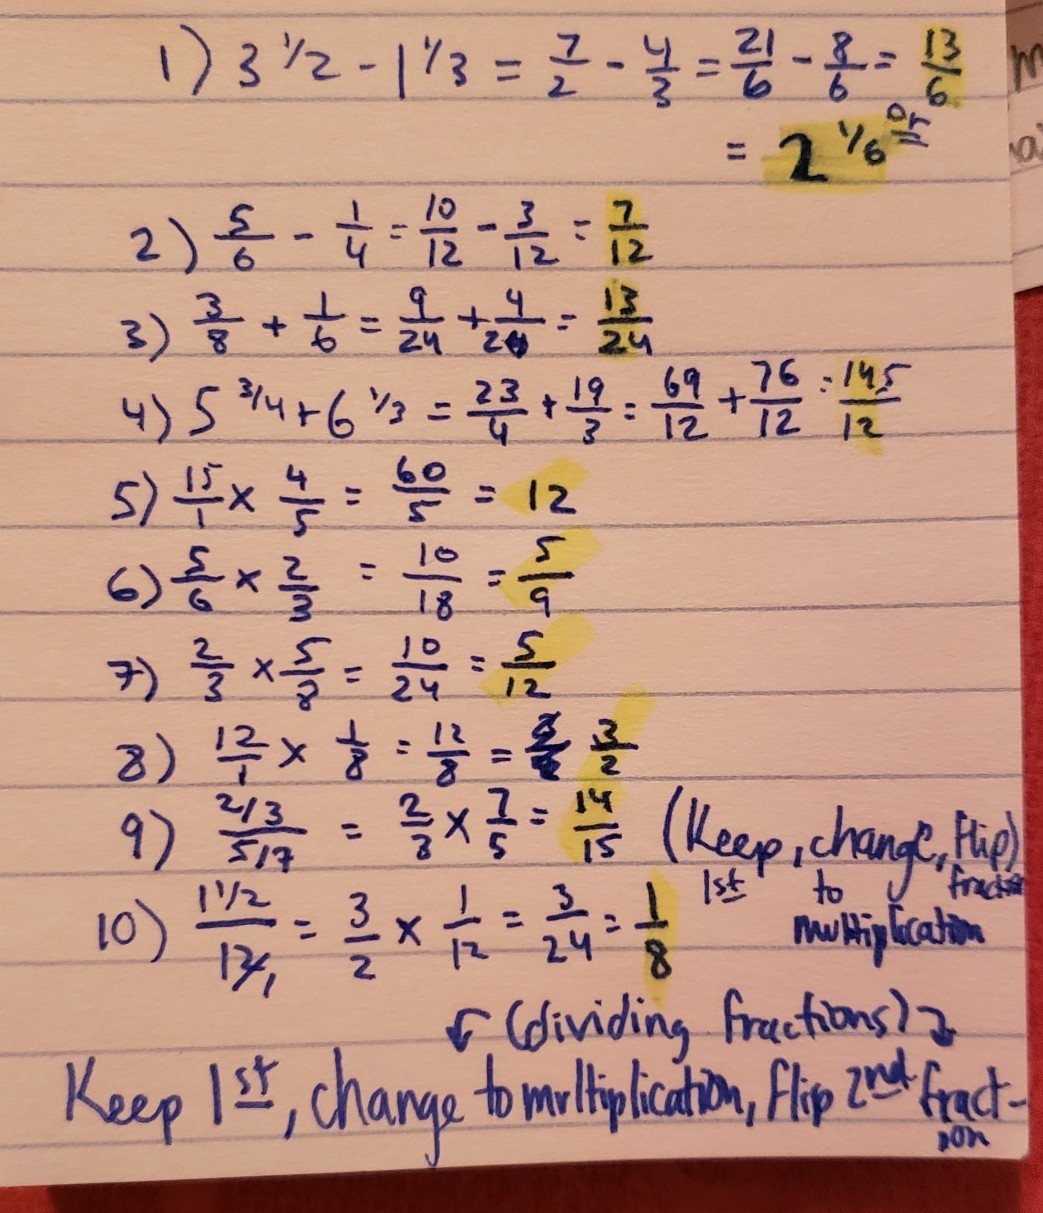 1) 3 1/2 - 1 1/3 = 7/2 - 4/3 = 21/6 - 8/6 = 13/6
or
= 2 1/6
2) 5/6 - 1/4 = 10/12 - 3/12 = 7/12
3) 3/8 + 1/6 = 9/24 + 4/24 = 13/24
4) 5 3/4 + 6 1/3 = 23/4 + 19/3 = 69/12 + 76/12 = 145/12
5) 15/1 x 4/5 = 60/5 = 12
6) 5/6 x 2/3 = 10/18 = 5/9
7) 2/3 x 5/8 = 10/24 = 5/12
8) 12/1 x 1/8 = 12/8 = 3/2
9) 2/3 / 5/7 = 2/3 x 7/5 = 14/15 (Keep, change, flip)
1st to fraction
multiplication
10) 1 1/2 / 12/1 = 3/2 x 1/12 = 3/24 = 1/8
(dividing fractions)
Keep 1st, change to multiplication, flip 2nd fract-
ion